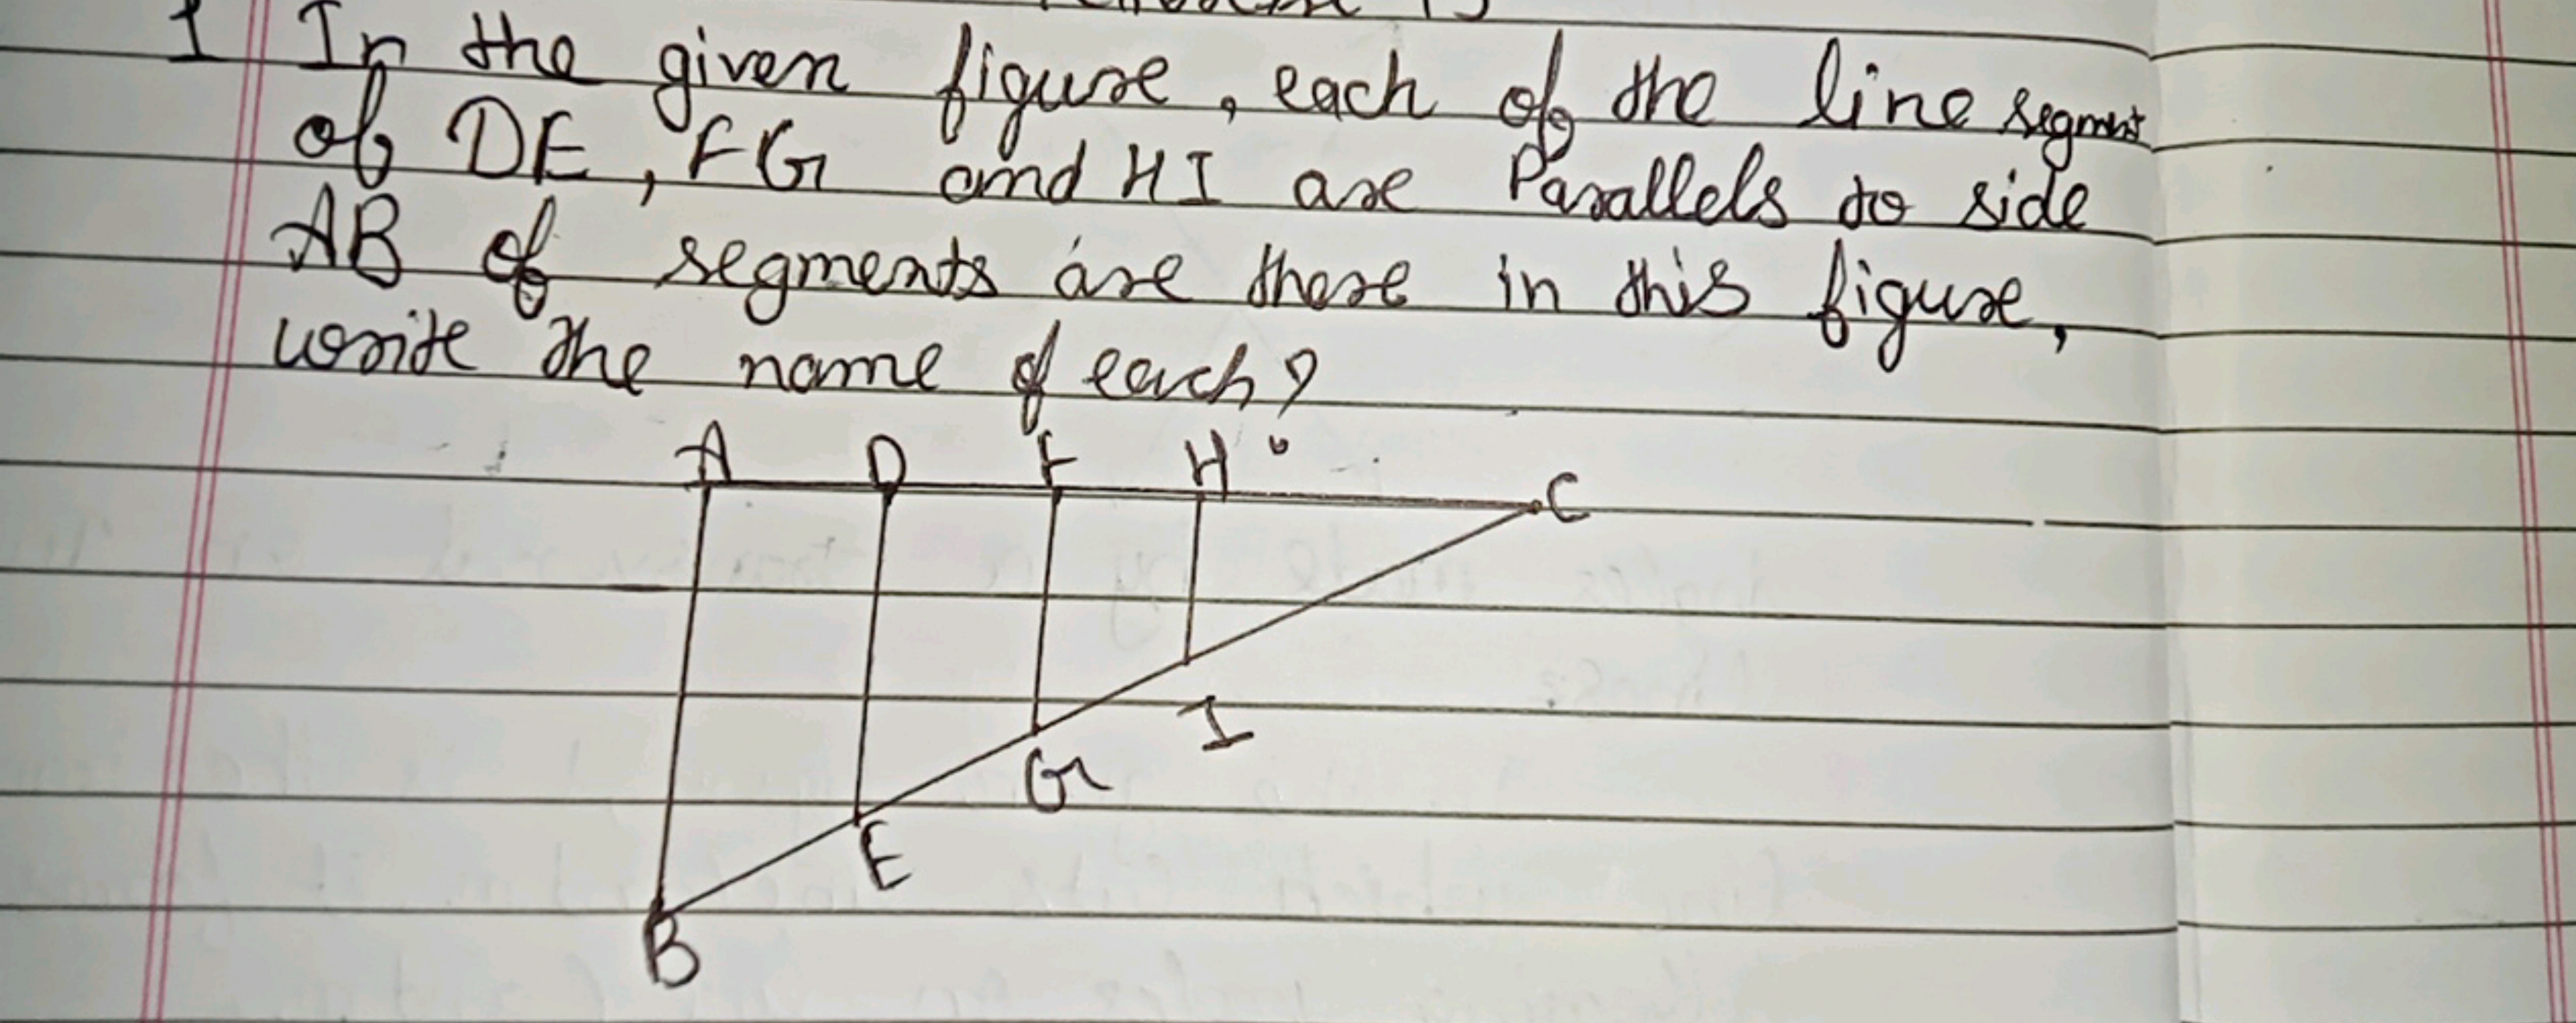 1 In the given figure, each of the line segment
of DE, FG and HI are Parallels to side
AB of segments are there in this figure,
write the name of each?
A D F H C
I
G
E
B